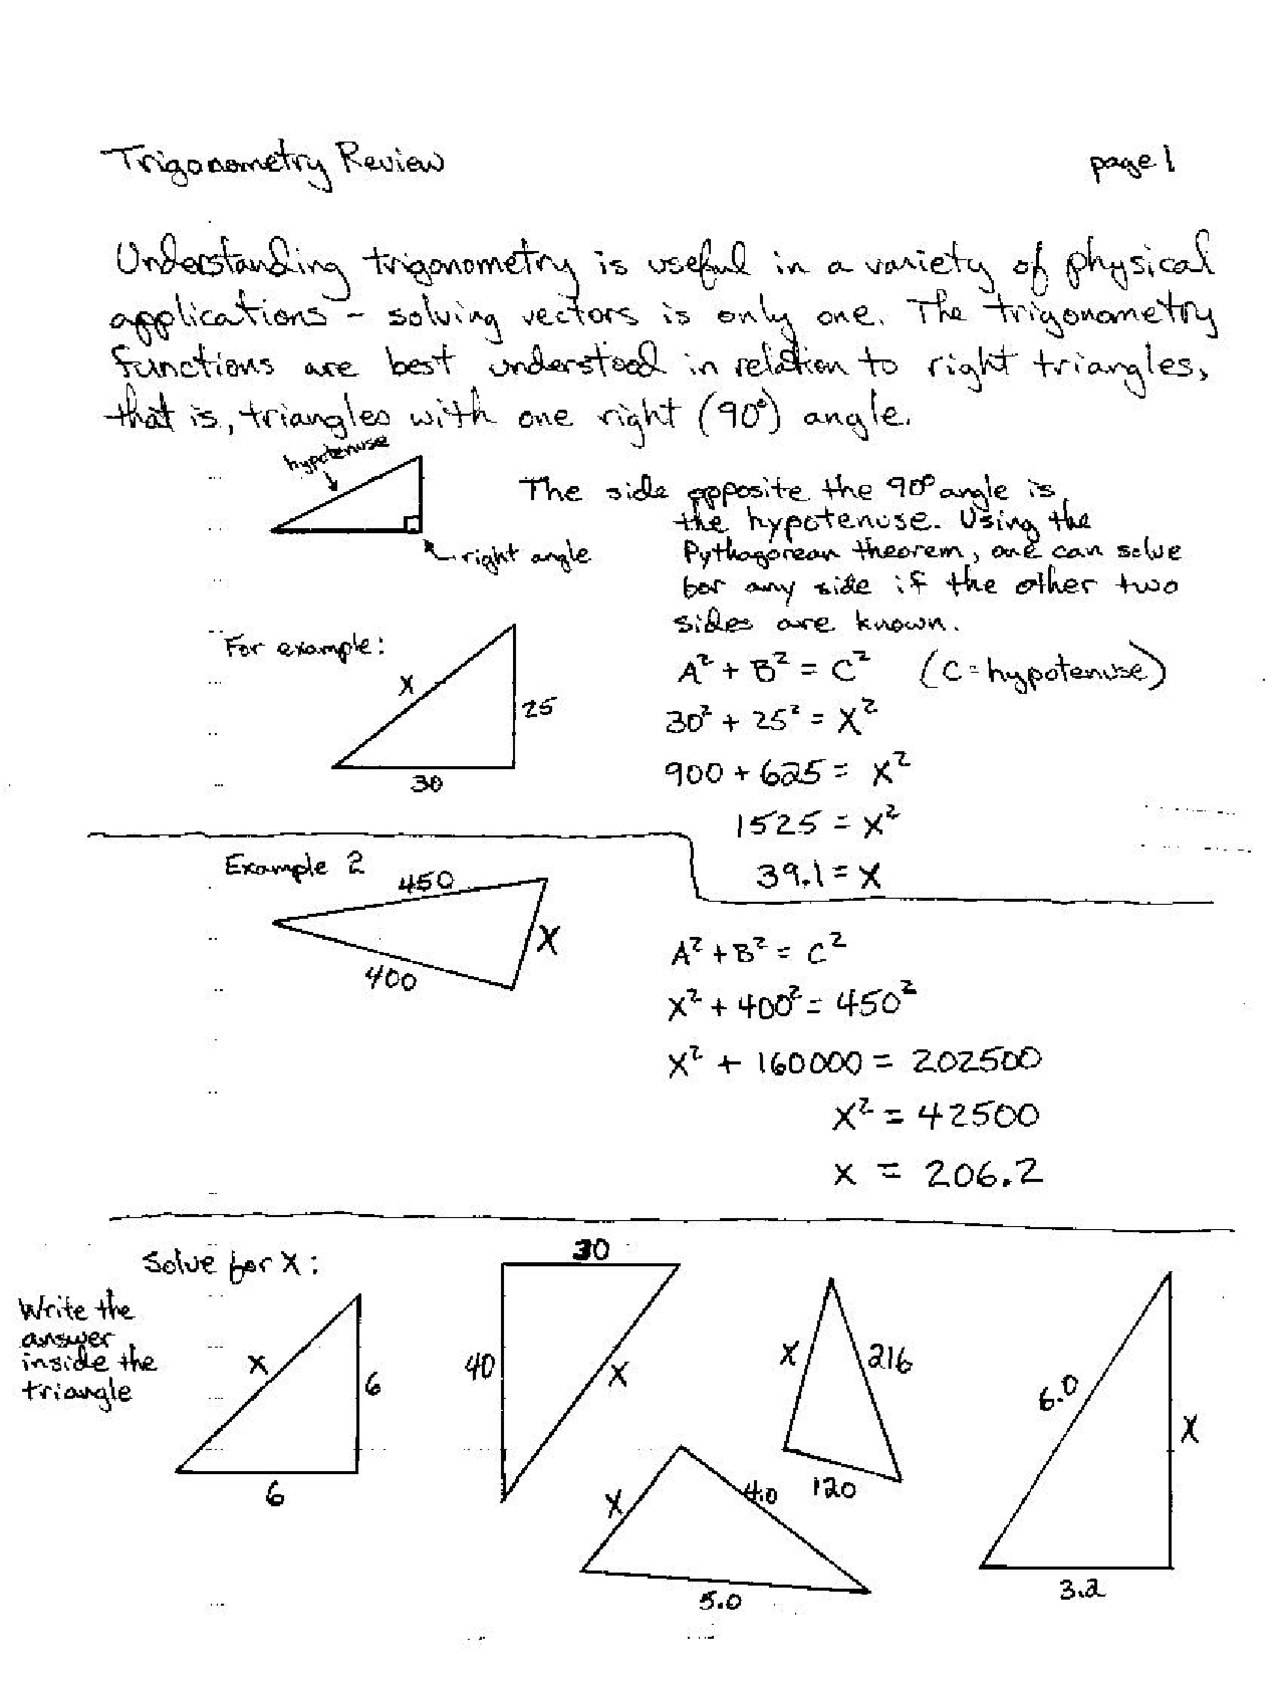 Trigonometry Review
page 1
Understanding trigonometry is useful in a variety of physical
applications - solving vectors is only one. The trigonometry
functions are best understood in relation to right triangles,
that is, triangles with one right (90°) angle.
hypotenuse
right angle
The side opposite the 90° angle is
the hypotenuse. Using the
Pythagorean theorem, one can solve
for any side if the other two
sides are known.
For example:
X
25
30
A² + B² = C² (C = hypotenuse)
30² + 25² = X²
900 + 625 = X²
1525 = X²
39.1 = X
Example 2
450
X
400
A² + B² = C²
X² + 400² = 450²
X² + 160000 = 202500
X² = 42500
X = 206.2
Solve for X:
Write the
answer
inside the
triangle
X
6
6
30
40
X
X
216
120
X
4.0
5.0
6.0
X
3.2